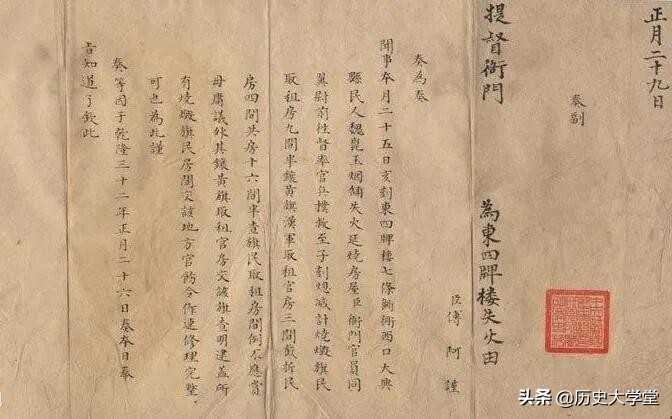 正月二十九日
奏副
提督衙門 為東四牌楼失火由
臣傅 阿 謹
奏為奏
聞事本月二十五日亥刻東四牌楼七條衚衕西口大興
縣民人魏崑玉烟舖失火延燒房屋臣衙門官員同
翼尉前往督率官兵撲救至子刻熄滅計燒燬旗民
取租房九間半鑲黃旗漢軍取租官房三間截拆民
房四間共房十六間半查旗民取租房間例不應賞
毋庸議外其鑲黃旗取租官房交該旗查明建盖所
有燒燬旗民房間交該地方官飭令作速修理完整
可也為此謹
奏等因于乾隆三十二年正月二十六日奏本日奉
旨知道了欽此
头条 @历史大学堂